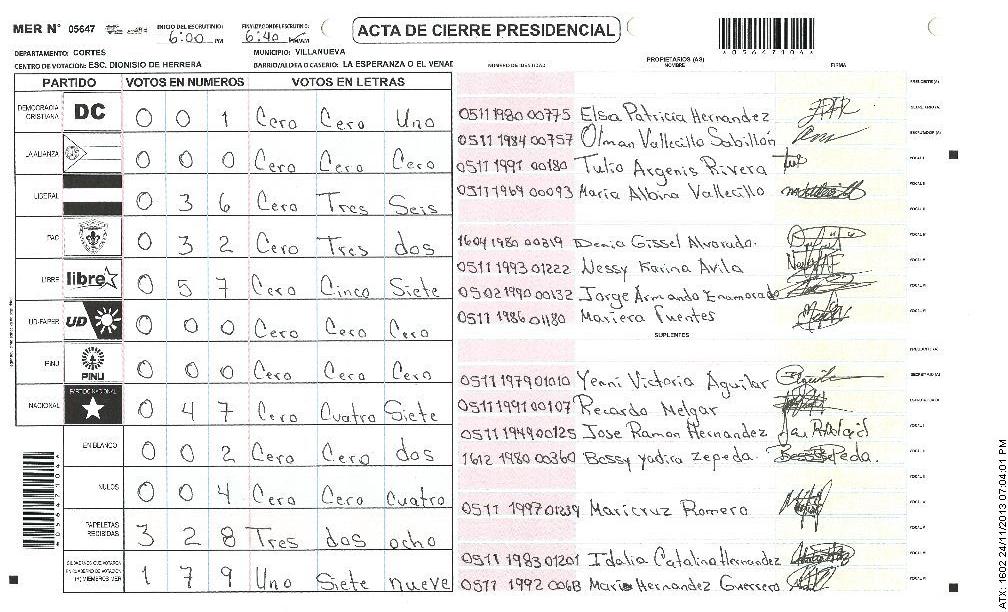 MER N° 05647 INICIO DEL ESCRUTINIO: 6:00 PM FINALIZACION ESCRUTINIO: 6:40 ACTA DE CIERRE PRESIDENCIAL
DEPARTAMENTO: CORTES MUNICIPIO: VILLANUEVA
CENTRO DE VOTACION: ESC. DIONISIO DE HERRERA BARRIO/ALDEA O CASERIO: LA ESPERANZA O EL VENAI
NUMERO DE IDENTIDAD PROPIETARIOS (AS) NOMBRE FIRMA
PARTIDO VOTOS EN NUMEROS VOTOS EN LETRAS
DEMOCRACIA CRISTIANA DC 0 0 1 Cero Cero Uno
LA ALIANZA 0 0 0 Cero Cero Cero
LIBERAL 0 3 6 Cero Tres Seis
PAC 0 3 2 Cero Tres dos
LIBRE libre 0 5 7 Cero Cinco Siete
UD-FAPER UD 0 0 0 Cero Cero Cero
PINU PINU 0 0 0 Cero Cero Cero
NACIONAL PARTIDO NACIONAL 0 4 7 Cero Cuatro Siete
EN BLANCO 0 0 2 Cero Cero dos
NULOS 0 0 4 Cero Cero Cuatro
PAPELETAS RECIBIDAS 3 2 8 Tres dos ocho
1 7 9 Uno Siete nueve
0511 1980 00775 Elsa Patricia Hernandez
0511 1984 00757 Olman Vallecillo Sabillón
0511 1991 00180 Tulio Argenis Rivera
0511 1969 00093 Maria Albina Vallecillo
1604 1980 00319 Denia Gissel Alvarado.
0511 1993 01222 Nessy Karina Avila
0502 1990 00132 Jorge Armando Enamorado
0511 1986 01180 Mariera Fuentes
SUPLENTES
0511 1979 01010 Yenni Victoria Aguilar
0511 1991 00107 Recardo Melgar
0511 1949 00125 Jose Ramon Hernandez
1612 1980 00360 Bessy Yadira Zepeda.
0511 1997 01239 Maricruz Romero
0511 1983 01201 Idalia Catalina Hernandez
0511 1992 Mario Hernandez Guerrero
ATX: 1602 24/11/2013 07:04:01 PM